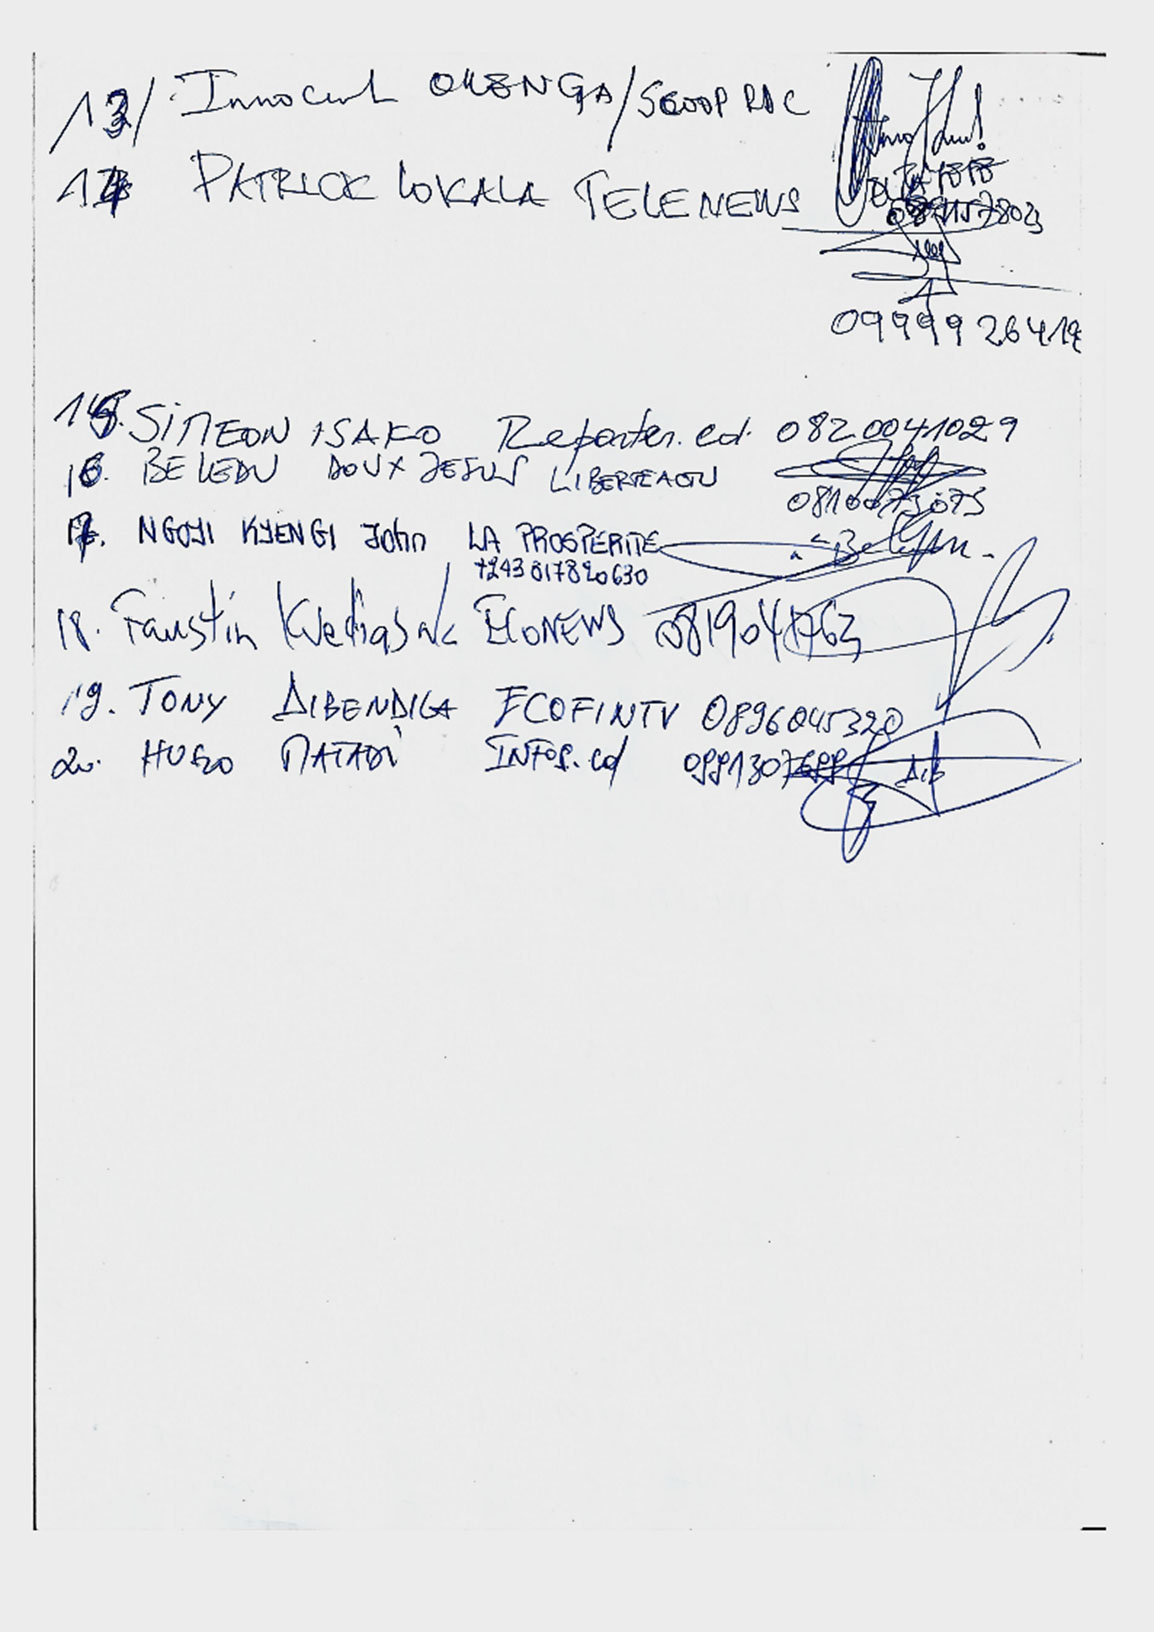 13/ Innocent OLENGA/SCOOP RDC
14 PATRICK LOKALA TELENEWS
0999926412
15. SIMEON ISAKO Reporter.cd 0820041029
16. BELEDU DOUX JESUS LIBERTEACTU
17. NGOYI KYENGI John LA PROSPERITE
+243817820630
18. Faustin ECONEWS
19. TONY DIBENDILA ECOFINTV 0896045320
20. HUGO MATADI INFOS.cd